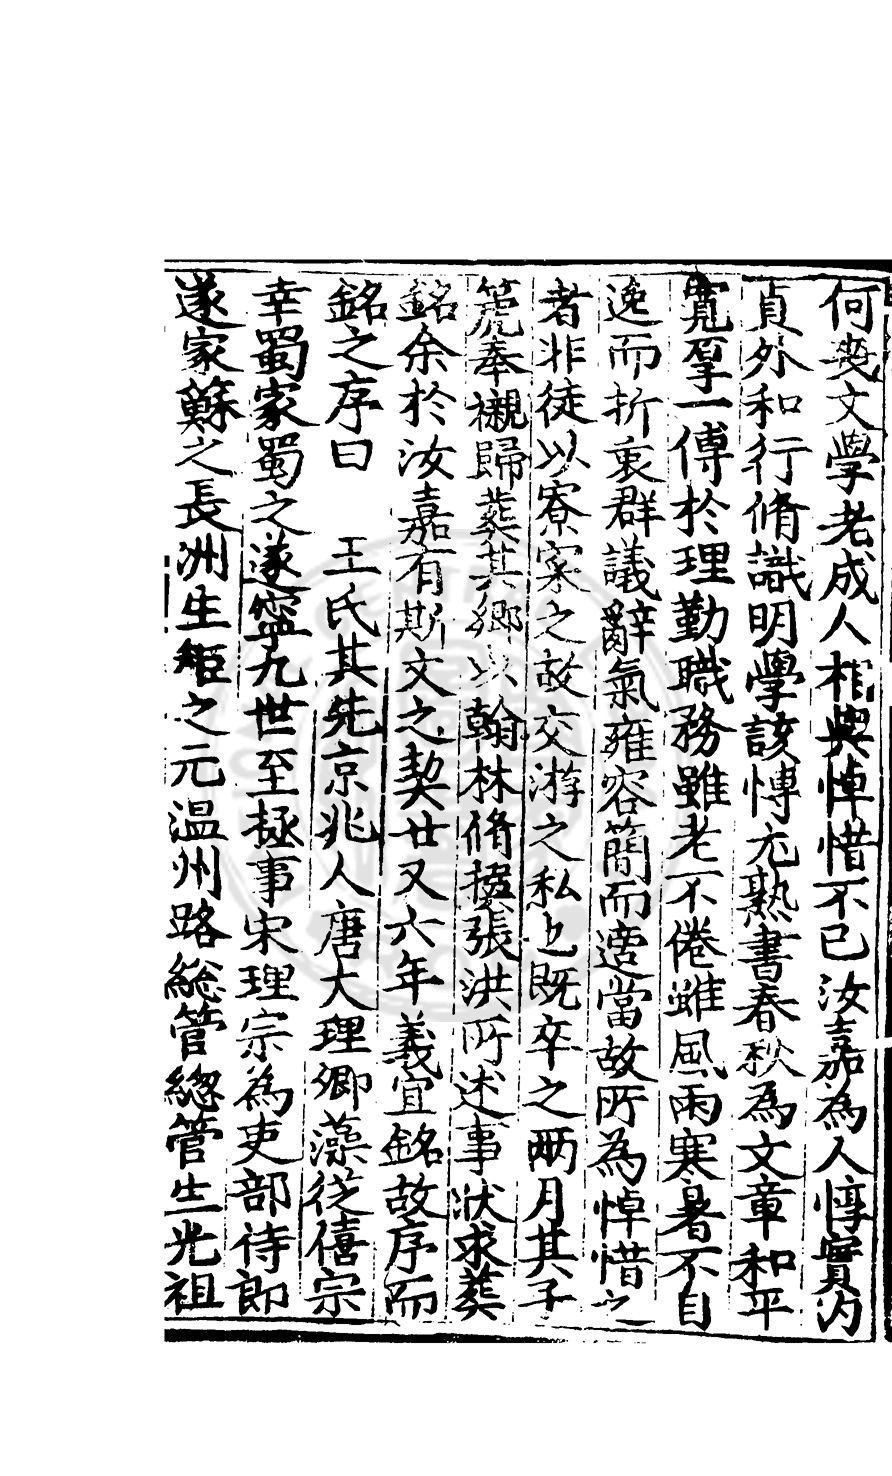 何喪文學老成人相與悼惜不已汝嘉為人惇實內
貞外和行脩識明學該博尤熟書春秋為文章和平
寬厚一傅於理勤職務雖老不倦雖風雨寒暑不自
逸而折衷群議辭氣雍容簡而適當故所為悼惜之
者非徒以寮寀之故交游之私也既卒之兩月其子
箎奉櫬歸葬其鄉以翰林脩撰張洪所述事狀求葬
銘余於汝嘉有斯文之契廿又六年義宜銘故序而
銘之序曰 王氏其先京兆人唐大理卿藻從僖宗
幸蜀家蜀之遂寧九世至極事宋理宗為吏部待郎
遂家蘇之長洲生矩之元温州路総管緫管生光祖